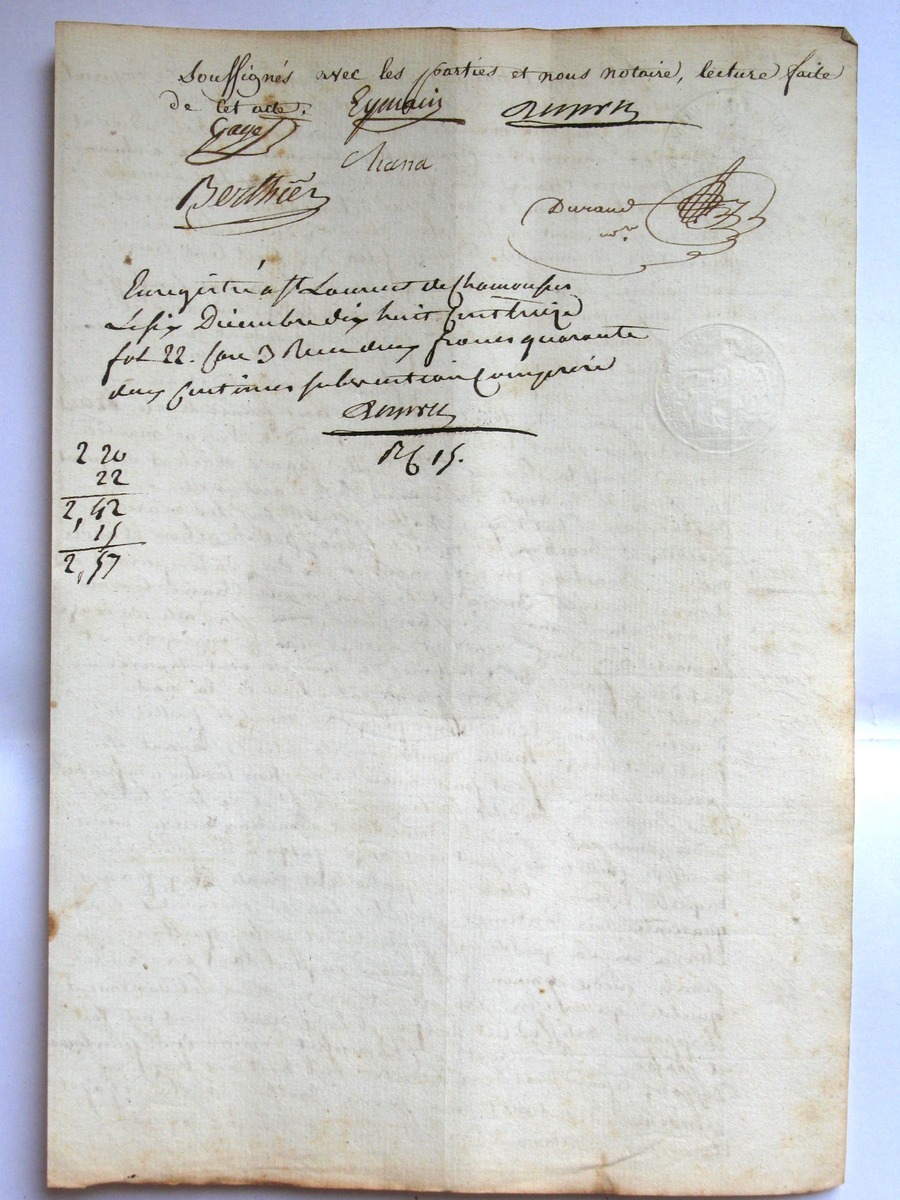 Soussignés avec les parties et nous notaire, lecture faite
de cet acte.
Eymain
Gaye
Chana
Berthier
Durand
nre
Enregistré à St Laurent de Chamousset
Le six Décembre dix huit Cent treize
fol 22. Case 3 Reçu deux francs quarante
deux Centimes subvention Comprise
RG 15.
2 20
22
2,42
15
2,57